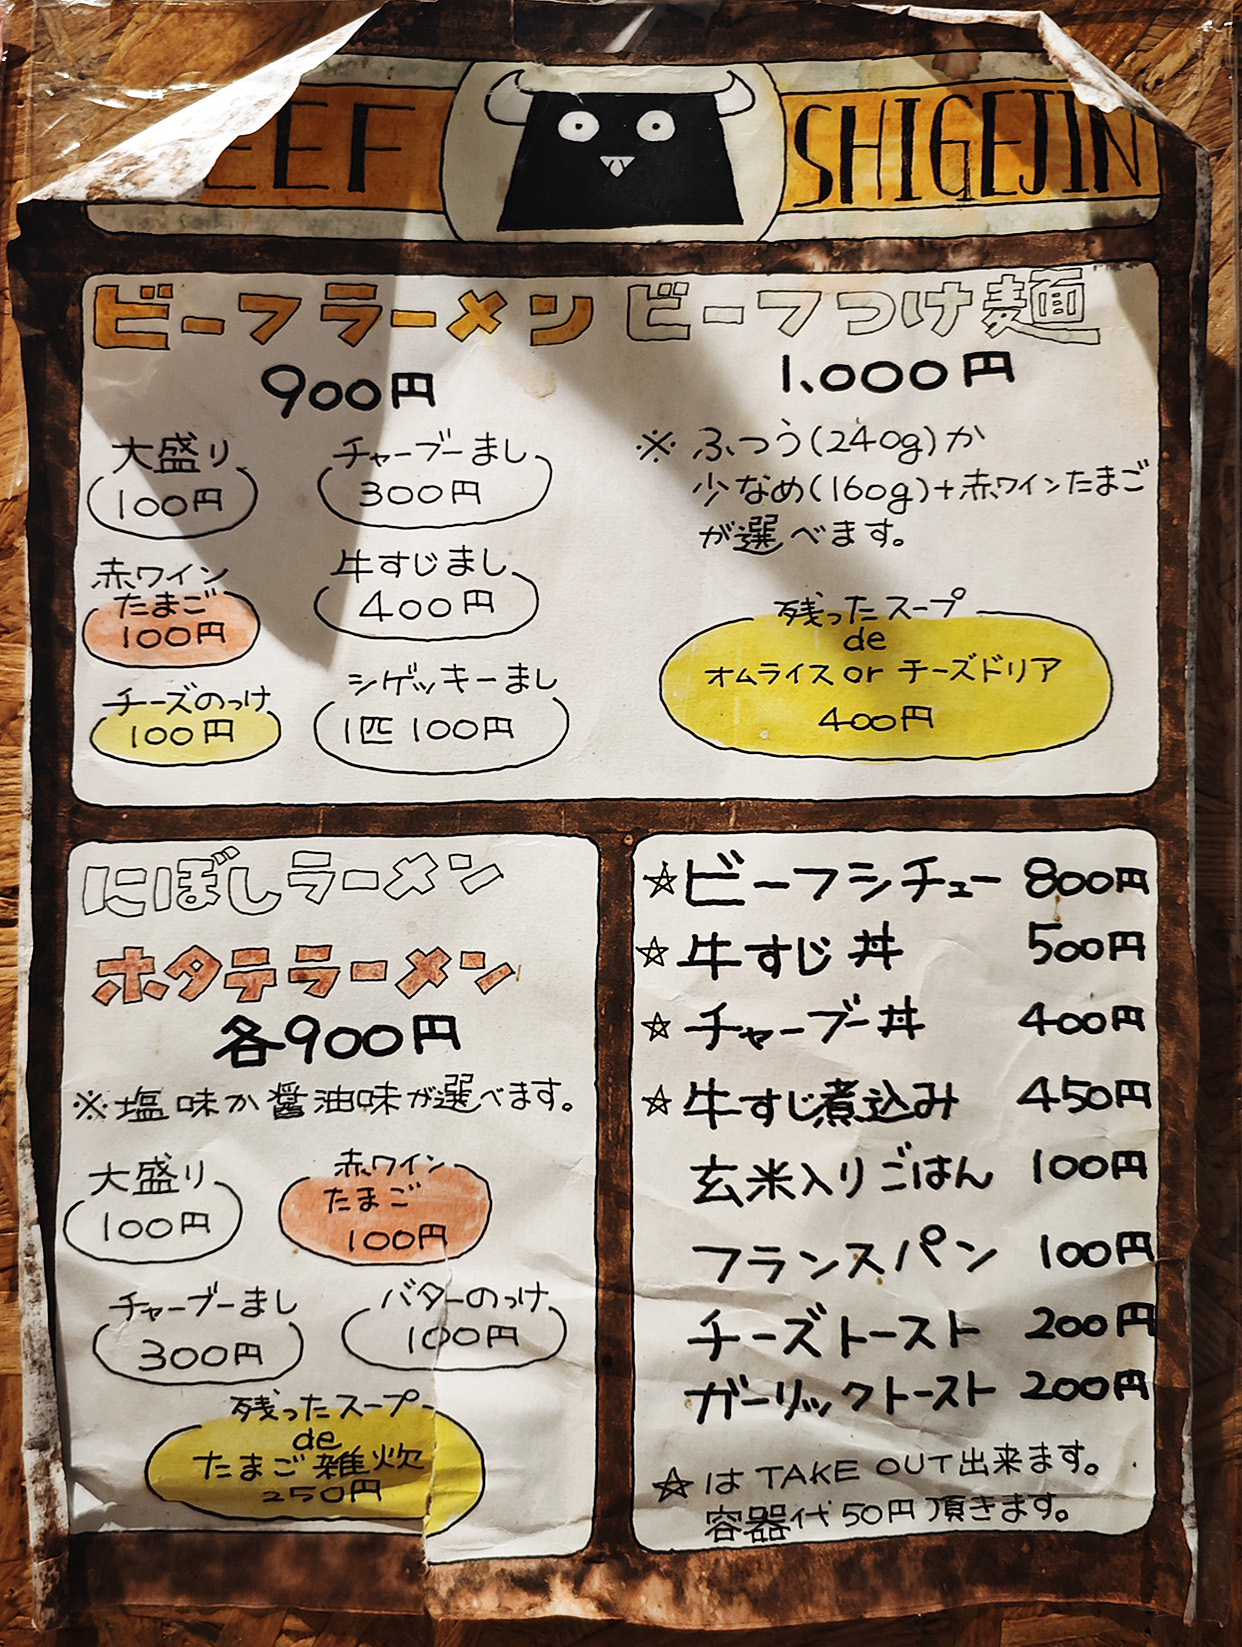 EEF SHIGEJIN
ビーフラーメン
900円
大盛り
100円
チャーブーまし
300円
赤ワイン
たまご
100円
牛すじまし
400円
チーズのっけ
100円
シゲッキーまし
1匹 100円
ビーフつけ麺
1,000円
※ ふつう(240g)か
少なめ(160g)+赤ワインたまご
が選べます。
残ったスープ
de
オムライス or チーズドリア
400円
にぼしラーメン
ホタテラーメン
各900円
※塩味か醤油味が選べます。
大盛り
100円
赤ワイン
たまご
100円
チャーブーまし
300円
バターのっけ
100円
残ったスープ
de
たまご雑炊
250円
☆ビーフシチュー 800円
☆牛すじ丼 500円
☆チャーブー丼 400円
☆牛すじ煮込み 450円
玄米入りごはん 100円
フランスパン 100円
チーズトースト 200円
ガーリックトースト 200円
☆はTAKE OUT出来ます。
容器代50円頂きます。